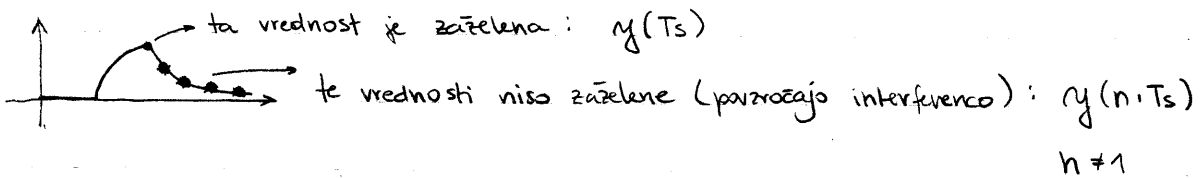 ta vrednost je zaželena : y(Ts)
te vrednosti niso zaželene (povzročajo interferenco) : y(n·Ts)
n ≠ 1